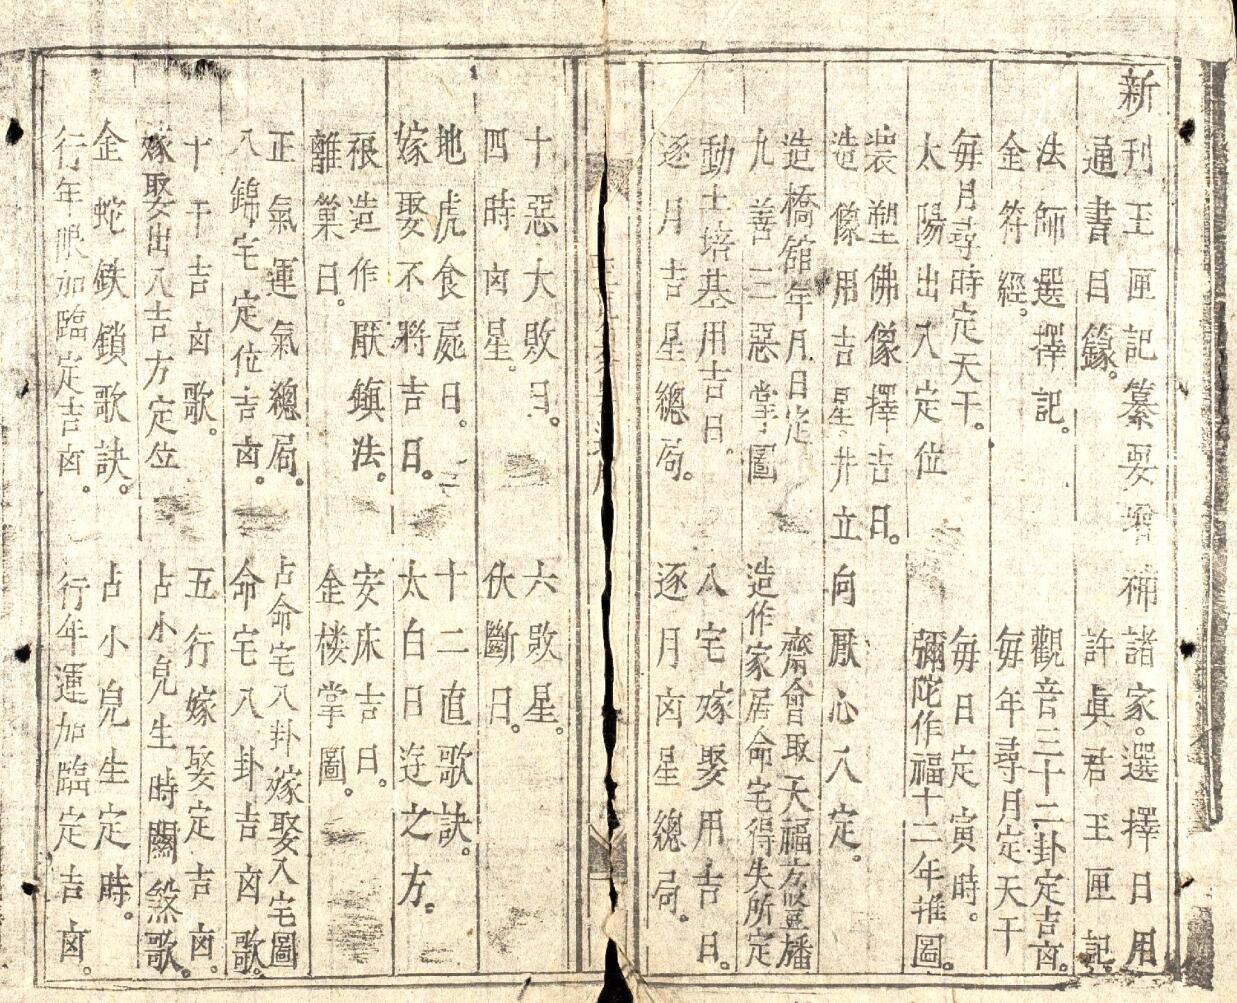 新刊玉匣記纂要增補諸家選擇日用
通書目錄。 許真君玉匣記。
法師選擇記。 觀音三十二卦定吉凶。
金符經。 每年尋月定天干
每月尋時定天干。 每日定寅時。
太陽出入定位 彌陀作福十二年推圖。
裝塑佛像擇吉日。
造像用吉星并立向厭心入定。
造橋舘年月日定 齋會取天福方竪旛
九善二惡掌圖 造作家居命宅得失所定
動土培基用吉日。 八宅嫁娶用吉日。
逐月吉星總局。 逐月凶星總局。
十惡大敗日。 六敗星。
四時凶星。 伏斷日。
地虎食屍日。 十二直歌訣。
嫁娶不將吉日。 太白日逰之方。
裖造作厭鎮法。 安床吉日。
離巢日。 金楼掌圖。
正氣運氣總局。 占命宅八卦嫁娶入宅圖
八錦宅定位吉凶。 命宅八卦吉凶歌。
十干吉凶歌。 五行嫁娶定吉凶。
嫁娶出入吉方定位 占小皃生時關煞歌。
金蛇鉄鎖歌訣。 占小皃生定時。
行年限加臨定吉凶。 行年運加臨定吉凶。